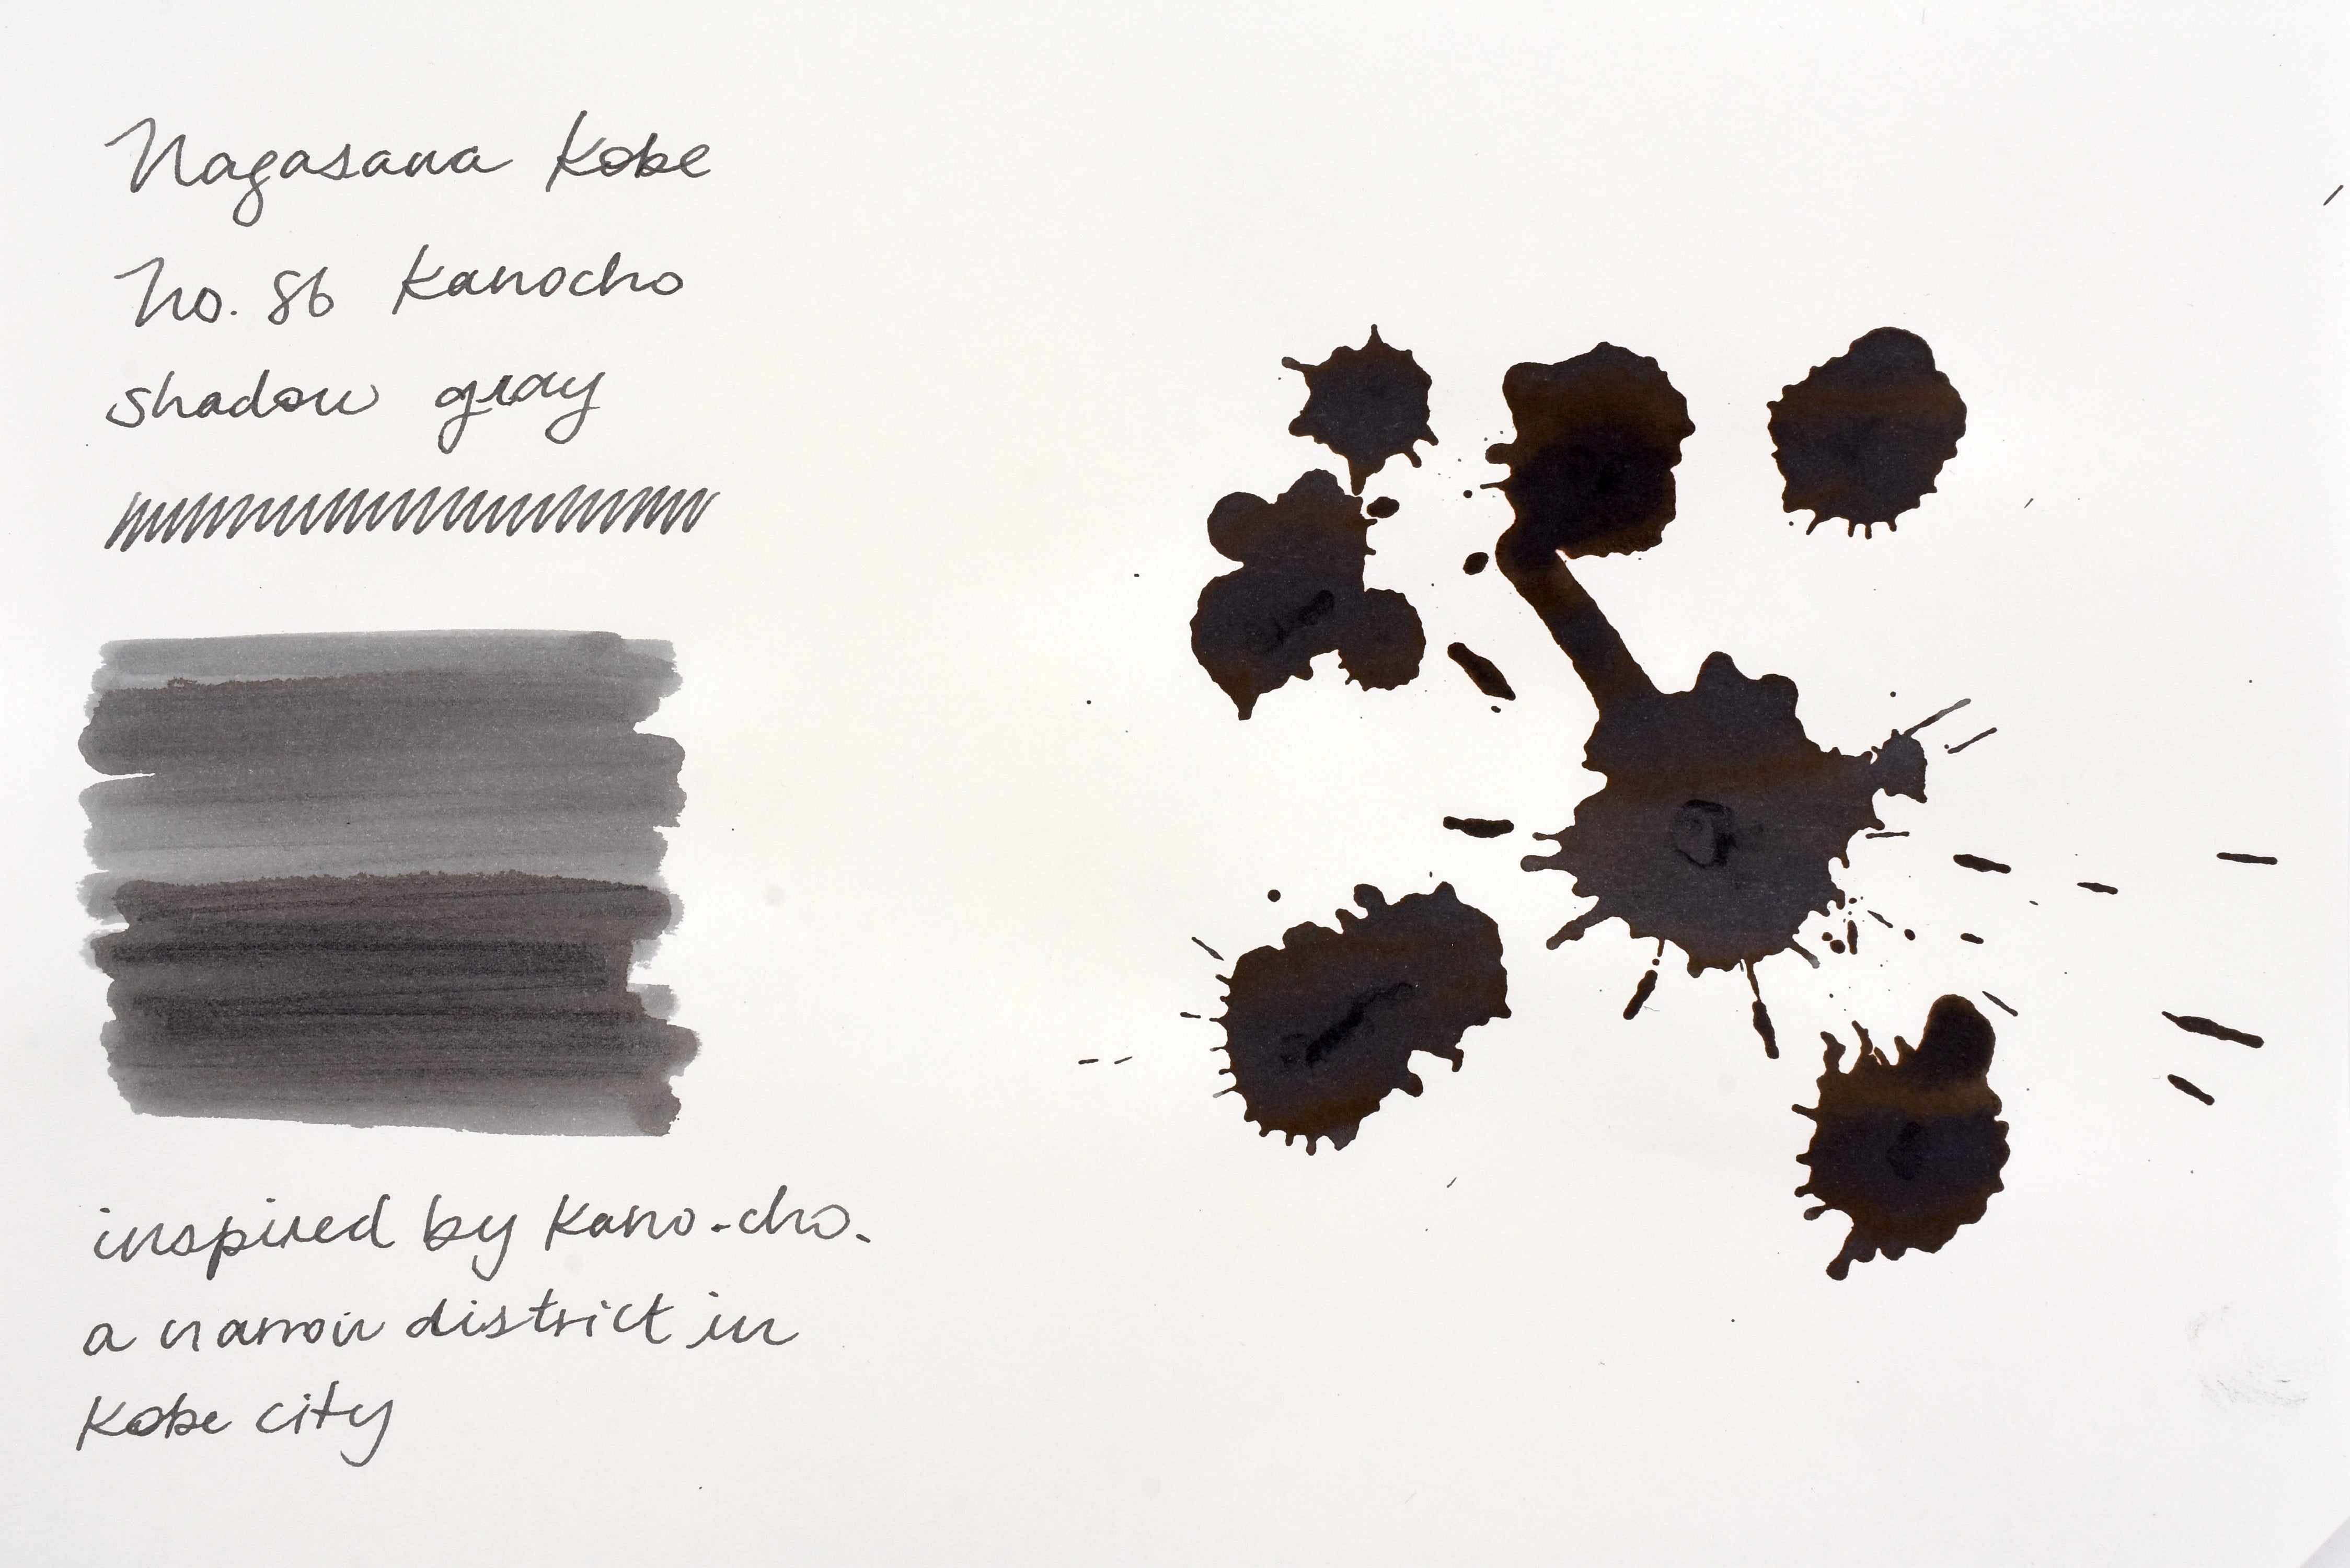 Nagasawa Kobe
No. 86 Kanocho
shadow gray
inspired by Kano-cho.
a narrow district in
Kobe city